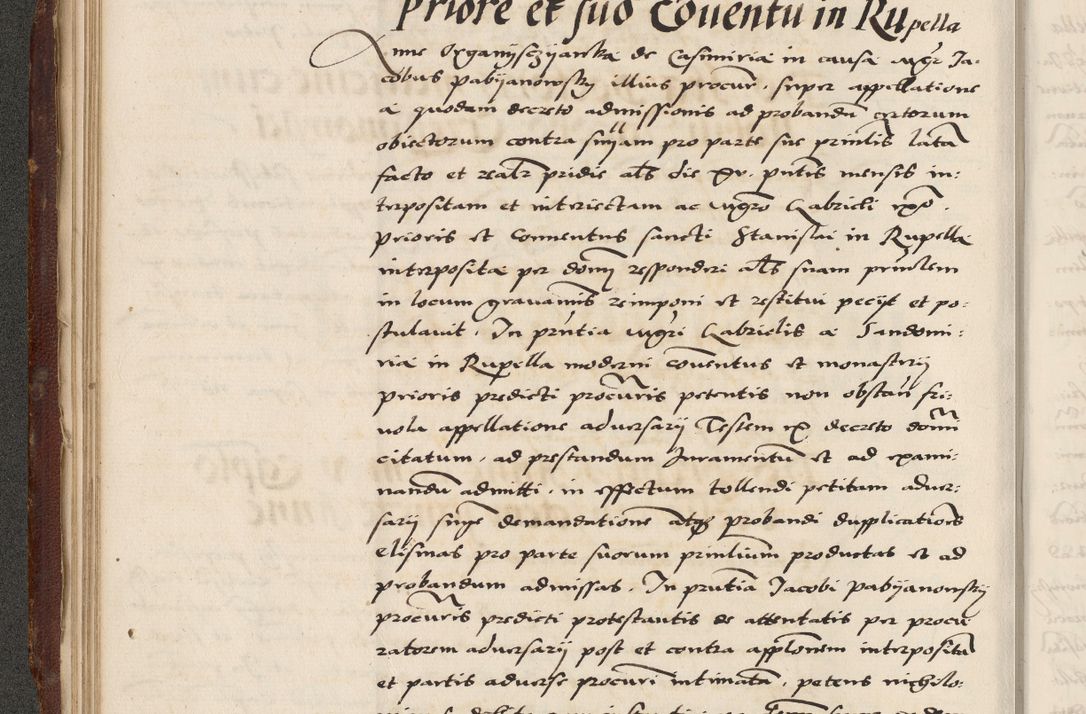 Priore et suo Coventu in Rupella
Anne Organysczyanka de Casimiria in causa mgr Ja-
cobus Pabijanowsky illius procur. super appellatione
a quodam decreto admissionis ad probandū certorum
obiectorum contra suam pro parte sue prinlis lata
facto et realr pridie als die xv. pntis mensis in:
terpositam et interiectam ac mgro Gabrieli
prioris et Conventus sancti Stanislai in Rupella
interposita per domj respondere als suam princlem
in locum gravamis reimponi et restitui pecijt et po:
stulavit. In pntia mgri Gabrielis a Sandomi:
ria in Rupella moderni Coventus et monastrij
prioris predicti procuris petentis non obstan fri:
vola appellatione adversarij Testem ex decreto domi
citatum, ad prestandum Juramentū et ad exami:
nandū admitti. in effectum tollendi petitam adver:
sarij demandatione atq probandi dupplicationes
elisivas pro parte suorum prinlium productas et ad
probandum admissas. In prntia Jacobi Pabijanowsky
procuris predicti protestantis de attentatis per procu
ratorem adversarij post et contra applonem interposita
et partis adverse procuri intimata, petens nichilo: